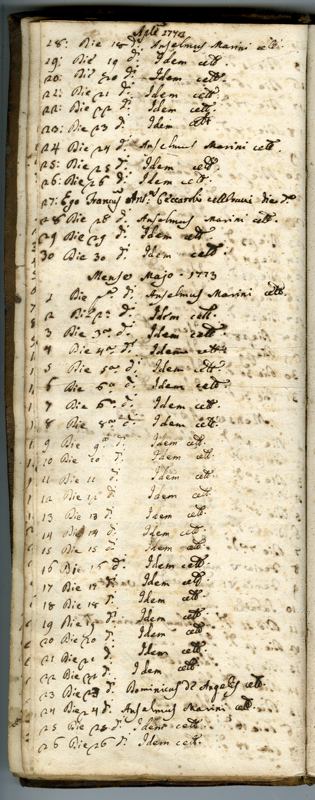 Aple 1773
28: Die 18 di: Anselmus Marini celt.
29: Die 19 di: Idem celt.
20: Die 20 di: Idem celt.
21: Die 21 di: Idem celt.
22: Die 22 di: Idem celt.
23: Die 23 di: Idem celt.
24 Die 24 di: Anselmus Marini celt.
25: Die 25 di: Idem celt.
26: Die 26 di: Idem celt.
27: Ego Francus Ant: Ceccaroli celebravi die da
28 Die 28 di: Anselmus Marini celt.
29 Die 29 di: Idem celt.
30 Die 30 di: Idem celt.
Mense Majo 1773
1 Die pa di: Anselmus Marini celt.
2 Die 2a di: Idem celt.
3 Die 3a di: Idem celt.
4 Die 4a di: Idem celt.
5 Die 5a di: Idem celt.
6 Die 6a di: Idem celt.
7 Die 6a di: Idem celt.
8 Die 8a di: Idem celt.
9 Die 9a di: Idem celt.
10 Die 10 di: Idem celt.
11 Die 11 di: Idem celt.
12 Die 12 di: Idem celt.
13 Die 13 di: Idem celt.
14 Die 14 di: Idem celt.
15 Die 15 di: Idem celt.
16 Die 16 di: Idem celt.
17 Die 17 di: Idem celt.
18 Die 18 di: Idem celt.
19 Die 19 di: Idem celt.
20 Die 20 di: Idem celt.
21 Die 21 di: Idem celt.
22 Die 22 di: Idem celt.
23 Die 23 di: Dominicus de Angelis celt.
24 Die 24 di: Anselmus Marini celt.
25 Die 25 di: Idem celt.
26 Die 26 di: Idem celt.